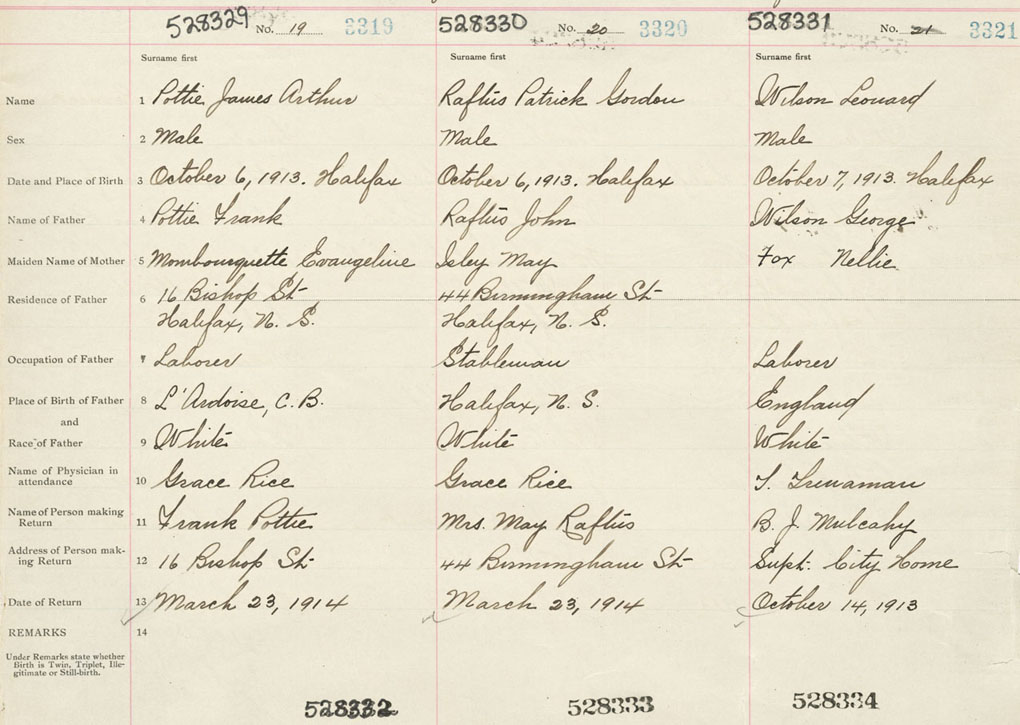 528329 No. 19 3319 528330 No. 20 3320 528331 No. 21 3321
Surname first Surname first Surname first
Name 1 Pottie James Arthur Raftus Patrick Gordon Wilson Leonard
Sex 2 Male Male Male
Date and Place of Birth 3 October 6, 1913. Halifax October 6, 1913. Halifax October 7, 1913. Halifax
Name of Father 4 Pottie Frank Raftus John Wilson George
Maiden Name of Mother 5 Mombourquette Evangeline Isley May Fox Nellie
Residence of Father 6 16 Bishop St 44 Birmingham St
Halifax, N. S. Halifax, N. S.
Occupation of Father 7 Laborer Stableman Laborer
Place of Birth of Father 8 L'Ardoise, C.B. Halifax, N. S. England
and
Race of Father 9 White White White
Name of Physician in
attendance 10 Grace Rice Grace Rice
Name of Person making
Return 11 Frank Pottie Mrs. May Raftus B. J. Mulcahy
Address of Person mak-
ing Return 12 16 Bishop St. 44 Birmingham St Supt. City Home
Date of Return 13 March 23, 1914 March 23, 1914 October 14, 1913
REMARKS 14
Under Remarks state whether
Birth is Twin, Triplet, Ille-
gitimate or Still-birth.
528332 528333 528334